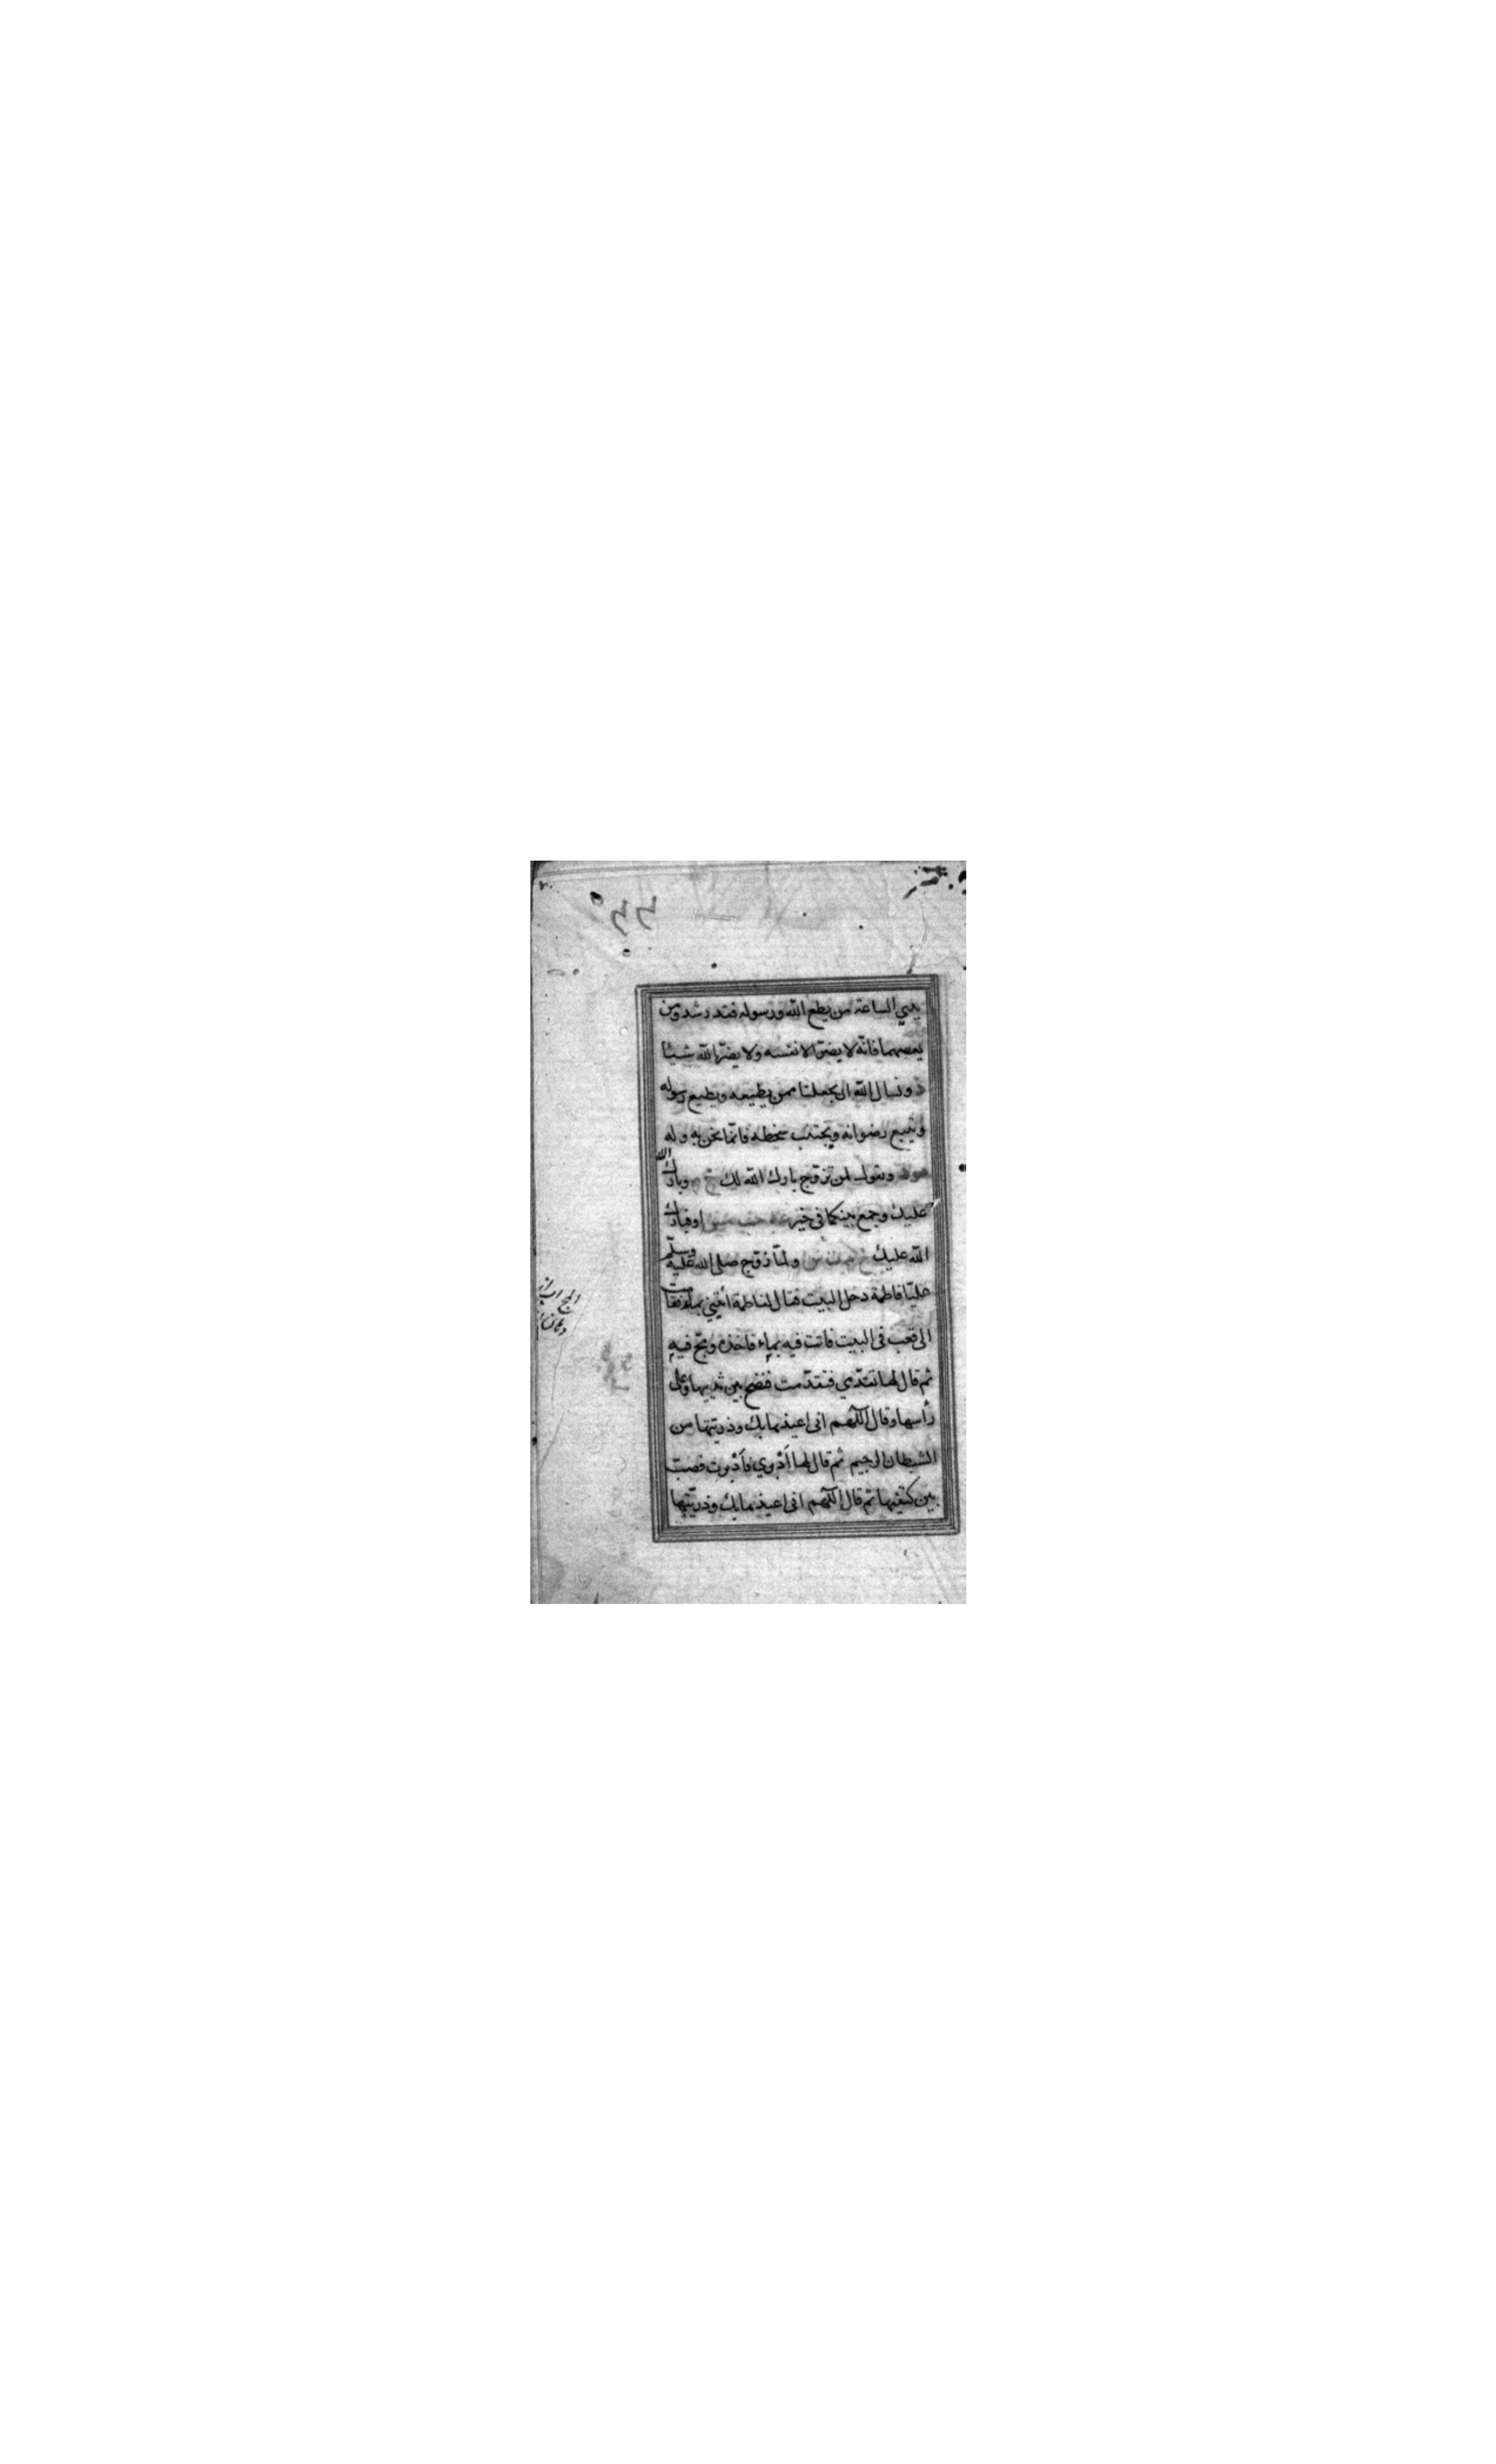 يدي الساعة من يطع الله ورسوله فقد رشد ومن
يعصهما فانّه لا يضرّ الا نفسه ولا يضرّ الله شيئا
د ونسال الله ان يجعلنا ممن يطيعه ويطيع رسوله
ويتبع رضوانه ويجتنب سخطه فانّما نحن به وله
ويقول لمن تزوّج بارك الله لك خ م وبارك الله
عليك وجمع بينكما في خير او فبارك
الله عليك ولمّا زوّج صلى الله عليه وسلّم
عليّا فاطمة دخل البيت فقال لفاطمة أيتيني بماء فقامت
الى قعب في البيت فاتت فيه بماء فاخذه ومجّ فيه
ثم قال لها تقدّمي فتقدّمت فنضح بين ثدييها وعلى
رأسها وقال اللّهم اني اعيذها بك وذريتها من
الشيطان الرجيم ثم قال لها أدبري فأدبرت فصبّ
بين كتفيها ثم قال اللّهم اني اعيذها بك وذريّتها